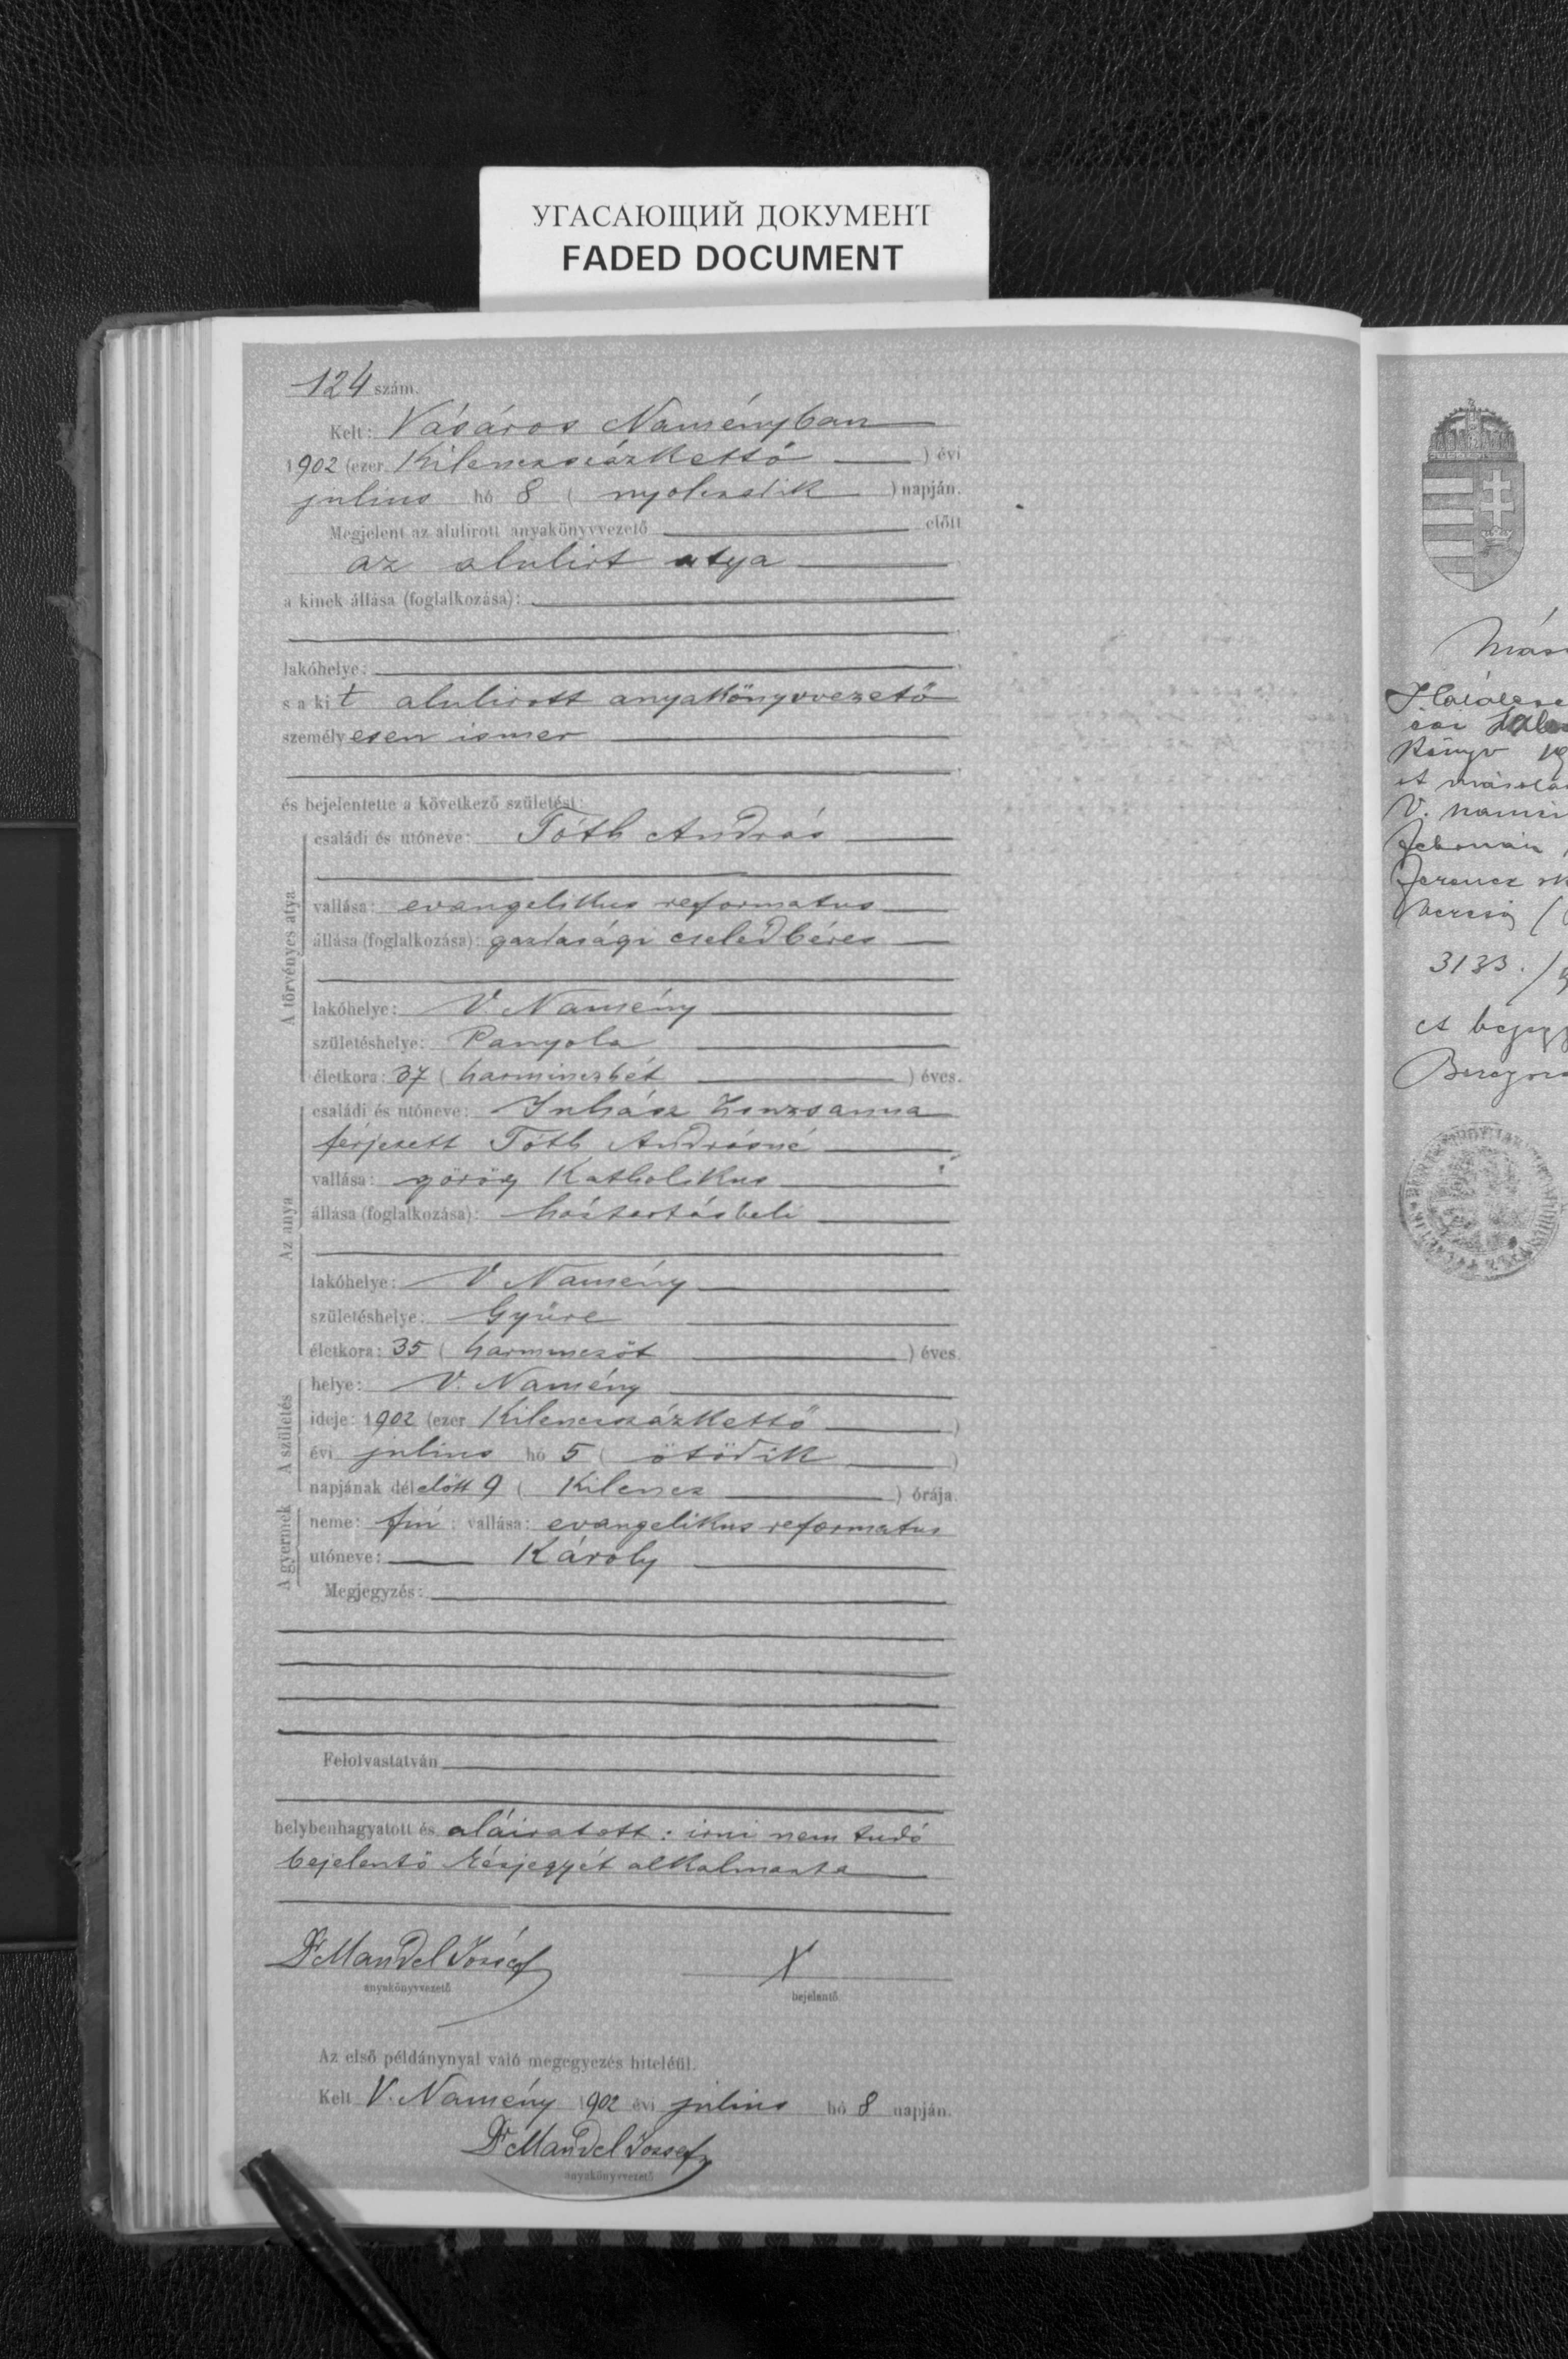 УГАСАЮЩИЙ ДОКУМЕНТ
FADED DOCUMENT
124 szám.
Kelt: Vásáros Naményban
1902 (ezer Kilenczszázkettő ) évi
julius hó 8 ( nyolczadik ) napján.
Megjelent az alulirott anyakönyvvezető előtt
az alulirt atya
a kinek állása (foglalkozása):
lakóhelye:
s a kit alulirott anyakönyvvezető
személyesen ismer
és bejelentette a következő születést:
A törvényes atya
családi és utóneve: Tóth András
vallása: evangelikus reformatus
állása (foglalkozása): gazdasági cselédbéres
lakóhelye: V. Namény
születéshelye: Panyola
életkora: 37 ( harminczhét ) éves.
Az anya
családi és utóneve: Juhász Zsuzsanna
férjezett Tóth Andrásné
vallása: görög Katholikus
állása (foglalkozása): háztartásbeli
lakóhelye: V. Namény
születéshelye: Gyüre
életkora: 35 ( harminczöt ) éves.
A születés
helye: V. Namény
ideje: 1902 (ezer Kilenczszázkettő )
évi julius hó 5 ( ötödik )
napjának délelőtt 9 ( Kilencz ) órája.
A gyermek
neme: fiú; vallása: evangelikus reformatus
utóneve: Károly
Megjegyzés:
Felolvastatván
helybenhagyatott és aláiratott: irni nem tudó
bejelentő kézjegyét alkalmazta
Dr Mandel József
anyakönyvvezető
X
bejelentő
Az első példánynyal való megegyezés hiteléül.
Kelt V. Namény 1902 évi julius hó 8 napján.
Dr Mandel József
anyakönyvvezető
Könyv
V.
3133.